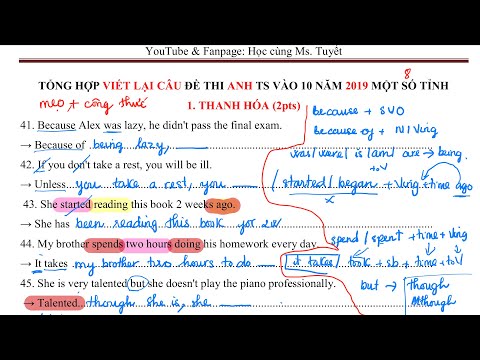 YouTube & Fanpage: Học cùng Ms. Tuyết
8
TỔNG HỢP VIẾT LẠI CÂU ĐỀ THI ANH TS VÀO 10 NĂM 2019 MỘT SỐ TỈNH
mẹo + công thức
1. THANH HÓA (2pts)
because + SVO
41. Because Alex was lazy, he didn't pass the final exam.
because of + N/Ving
→ Because of being lazy,
was/were/is/am/are → being.
42. If you don't take a rest, you will be ill.
+toV
→ Unless you take a rest, you
started/began +Ving +time ago
x
43. She started reading this book 2 weeks ago.
→ She has been reading this book for 2w
spend/spent +time +Ving
44. My brother spends two hours doing his homework every day.
→ It takes my brother two hours to do
it takes/took + sb + time +toV
45. She is very talented but she doesn't play the piano professionally.
but → though
Although
→ Talented though she is, she